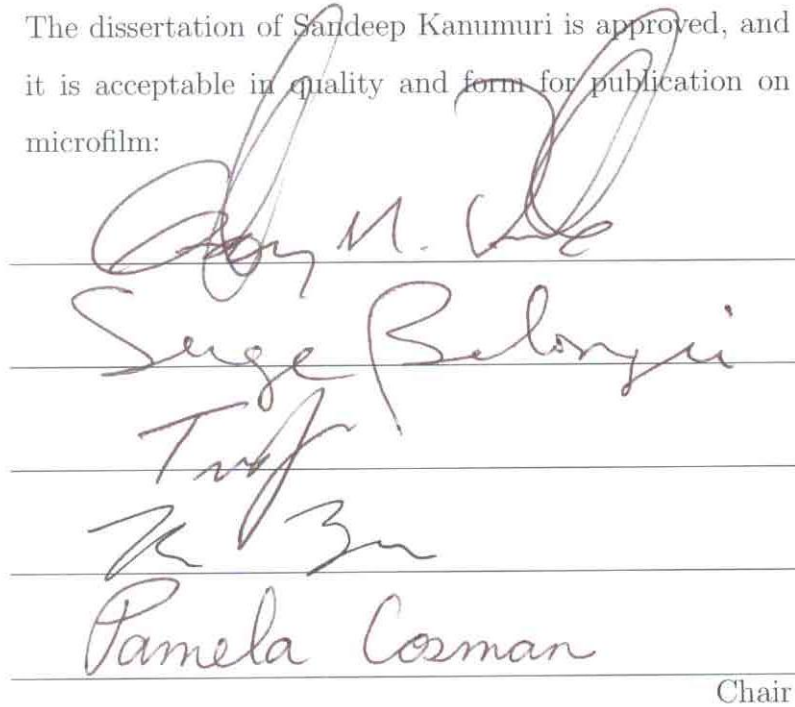 The dissertation of Sandeep Kanumuri is approved, and
it is acceptable in quality and form for publication on
microfilm:
M.
Serge Belongie
Pamela Cosman
Chair